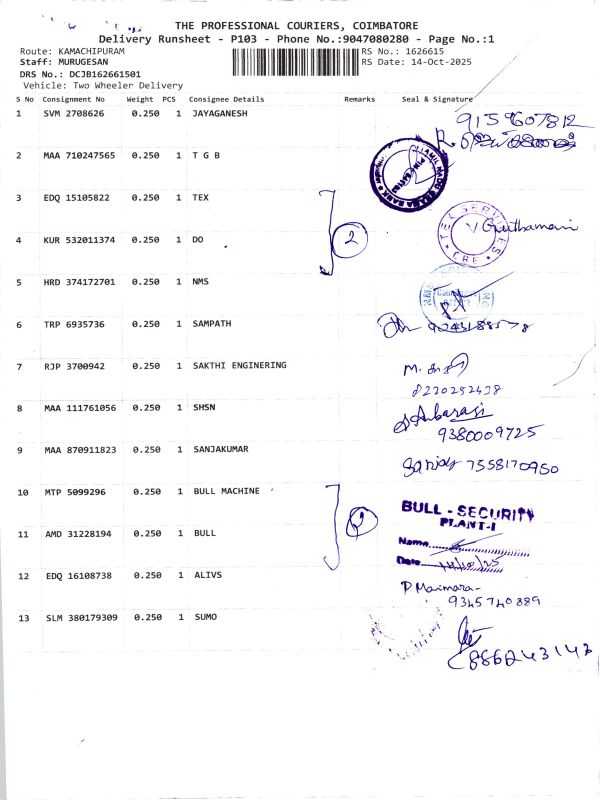 THE PROFESSIONAL COURIERS, COIMBATORE
Delivery Runsheet - P103 - Phone No.:9047080280 - Page No.:1
Route: KAMACHIPURAM RS No.: 1626615
Staff: MURUGESAN RS Date: 14-Oct-2025
DRS No.: DCJB162661501
Vehicle: Two Wheeler Delivery
S No Consignment No Weight PCS Consignee Details Remarks Seal & Signature
1 SVM 2708626 0.250 1 JAYAGANESH 9159607812
2 MAA 710247565 0.250 1 T G B
3 EDQ 15105822 0.250 1 TEX TEX SERVICES CBE
4 KUR 532011374 0.250 1 DO 2
5 HRD 374172701 0.250 1 NMS
6 TRP 6935736 0.250 1 SAMPATH 9043188578
7 RJP 3700942 0.250 1 SAKTHI ENGINERING
8220252438
8 MAA 111761056 0.250 1 SHSN Anbarasi
9380009725
9 MAA 870911823 0.250 1 SANJAKUMAR Sanjay 7558170950
10 MTP 5099296 0.250 1 BULL MACHINE BULL - SECURITY
PLANT-I
11 AMD 31228194 0.250 1 BULL 2 Name
Date 14/10/25
12 EDQ 16108738 0.250 1 ALIVS
9345740889
13 SLM 380179309 0.250 1 SUMO
886243142